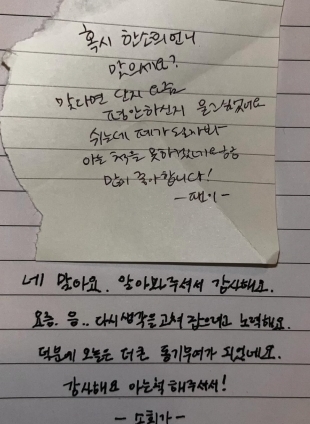 혹시 한소희언니
맞으세요?
맞다면 단지 요즘
평안하신지 묻고싶었어요
쉬는데 폐가 될까봐
아는 척을 못하겠네요
많이 좋아합니다!
-팬이-
네 맞아요. 알아봐주셔서 감사해요.
요즘. 음.. 다시 생각을 고쳐 잡으려고 노력해요.
덕분에 오늘은 더 큰 동기부여가 되었네요.
감사해요 아는척 해주셔서!
-소희가-